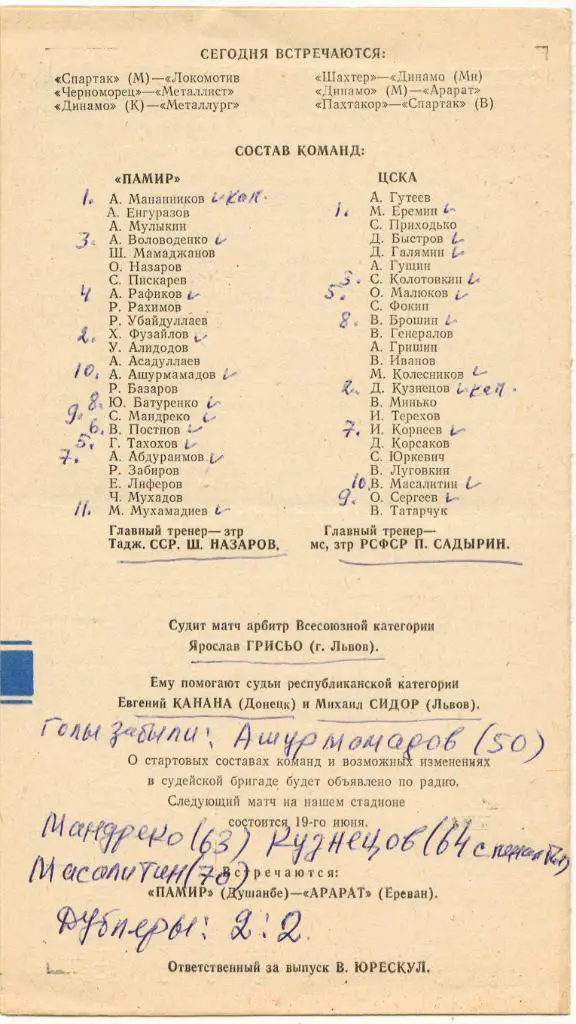 СЕГОДНЯ ВСТРЕЧАЮТСЯ:
«Спартак» (М)—«Локомотив
«Черноморец»—«Металлист»
«Динамо» (К)—«Металлург»
«Шахтер»—«Динамо (Мн)
«Динамо» (М)—«Арарат»
«Пахтакор»—«Спартак» (В)
СОСТАВ КОМАНД:
«ПАМИР»
1. А. Мананников ✓ кап.
А. Енгуразов
А. Мулыкин
3. А. Воловоденко ✓
Ш. Мамаджанов
О. Назаров
С. Пискарев
4 А. Рафиков ✓
Р. Рахимов
Р. Убайдуллаев
2. Х. Фузайлов ✓
У. Алидодов
А. Асадуллаев
10. А. Ашурмамадов ✓
Р. Базаров
8. Ю. Батуренко ✓
9. С. Мандреко ✓
6. В. Постнов ✓
5. Г. Тахохов ✓
7. А. Абдураимов ✓
Р. Забиров
Е. Лиферов
Ч. Мухадов
11. М. Мухамадиев ✓
Главный тренер—зтр
Тадж. ССР. Ш. НАЗАРОВ.
ЦСКА
А. Гутеев
1. М. Еремин ✓
С. Приходько
Д. Быстров ✓
Д. Галямин ✓
А. Гущин
3. С. Колотовкин ✓
5. О. Малюков ✓
С. Фокин
8. В. Брошин ✓
В. Генералов
А. Гришин
В. Иванов
М. Колесников ✓
2. Д. Кузнецов ✓ кап.
В. Минько
И. Терехов
7. И. Корнеев ✓
Д. Корсаков
С. Юркевич
В. Луговкин
10. В. Масалитин ✓
9. О. Сергеев ✓
В. Татарчук
Главный тренер—
мс, зтр РСФСР П. САДЫРИН.
Судит матч арбитр Всесоюзной категории
Ярослав ГРИСЬО (г. Львов).
Ему помогают судьи республиканской категории
Евгений КАНАНА (Донецк) и Михаил СИДОР (Львов).
Голы забили: Ашурмамадов (50)
О стартовых составах команд и возможных изменениях
в судейской бригаде будет объявлено по радио.
Следующий матч на нашем стадионе
состоится 19-го июня.
Мандреко (63) Кузнецов (64 с пенальти)
Масалитин (70)
Встречаются:
«ПАМИР» (Душанбе)—«АРАРАТ» (Ереван).
Дублеры: 2:2.
Ответственный за выпуск В. ЮРЕСКУЛ.